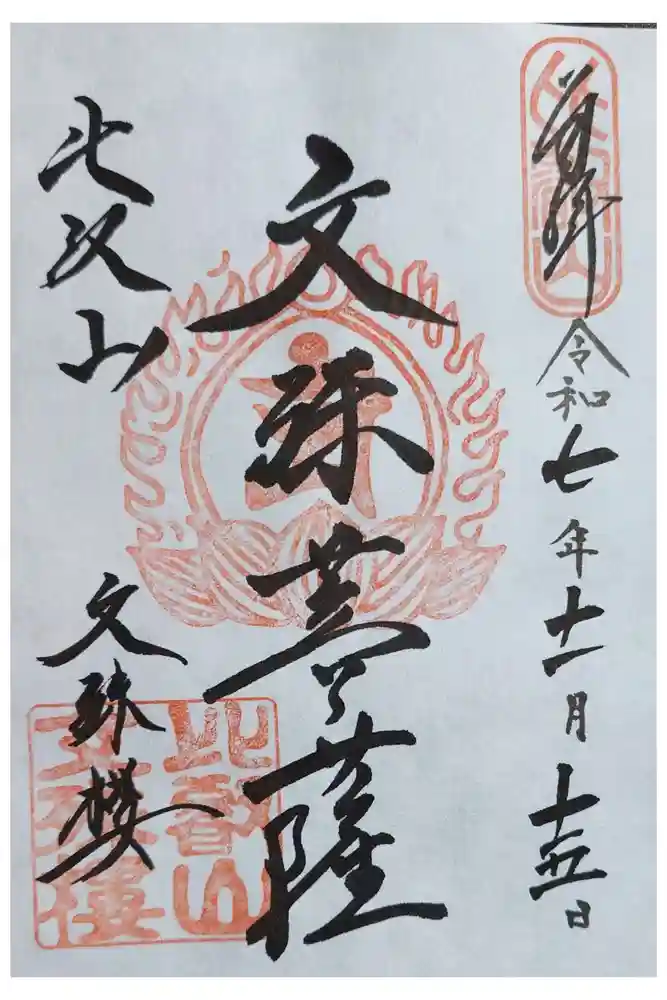 奉拝
令和七年十一月十五日
文殊菩薩
比叡山
文殊楼
比叡山
文殊樓